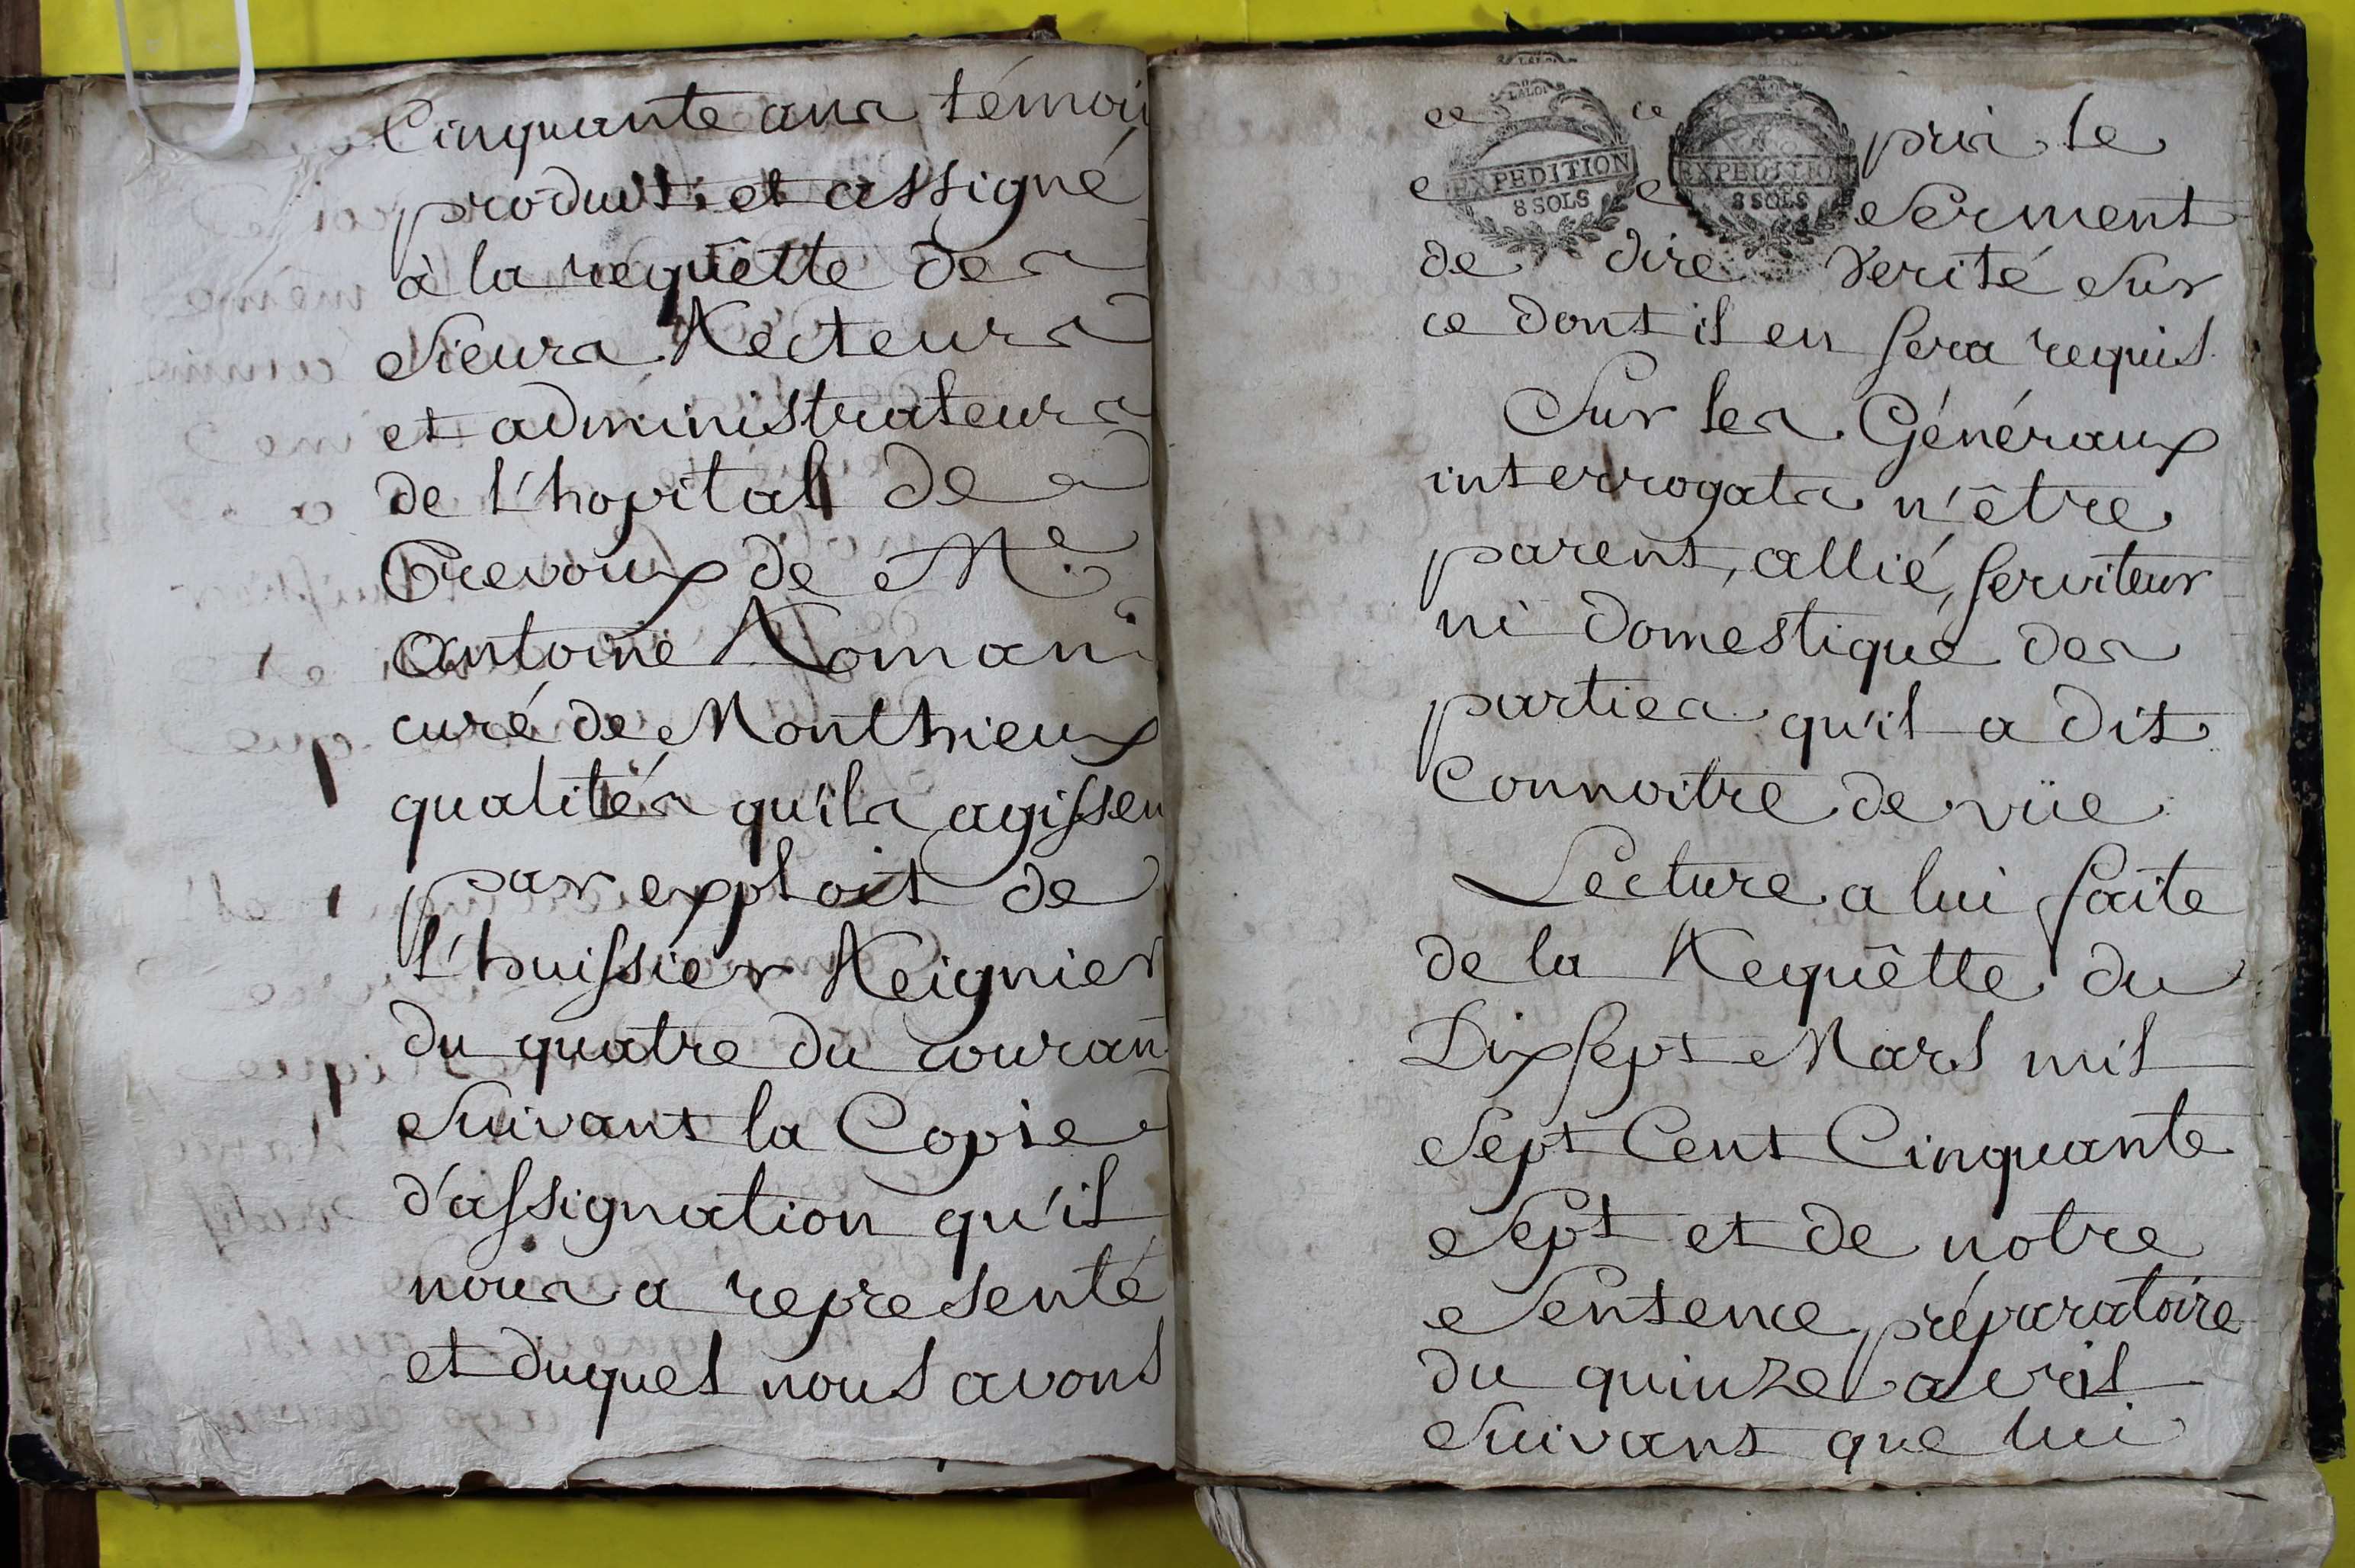 Cinquante ans témoi
produit et assigné
à la requêtte des
Sieurs Recteurs
et administrateurs
de l'hopital de
Trevoux de Me
antoine Romani
curé de Monthieux
qualités qu'ils agissen
par exploit de
l'huissier Reignier
du quatre du couran
Suivant la Copie
d'assignation qu'il
nous a representé
et duquel nous avons
pris le
EXPEDITION
8 SOLS
EXPEDITION
8 SOLS
Serment
de dire verité Sur
ce dont il en sera requis
Sur les Généraux
interrogats n'être
parent, allié, serviteur
ni domestique des
parties qu'il a dit
Connoitre de vüe
Lecture a lui faite
de la Requêtte du
Dix sept Mars mil
Sept Cent Cinquante
Sept et de notre
Sentence préparatoire
du quinze avril
Suivant que lui